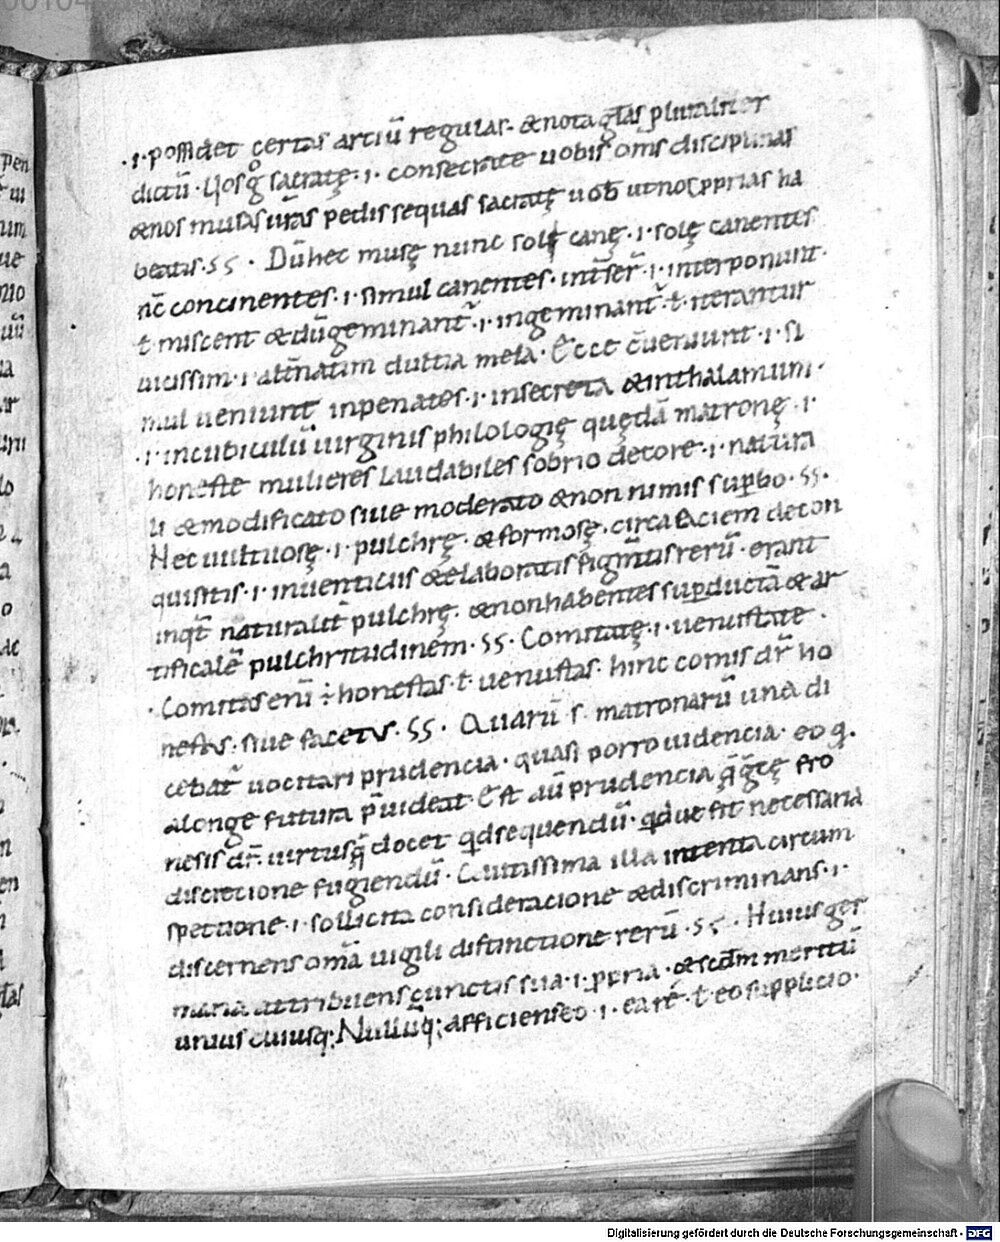 ·ı· possidet certas artiū regulas· & nota gl̄as pluraliter
dictū· Uos g̊ sacratę· ı· consecrate uobis om̄s disciplinas
& nos musas ur̄as pedissequas sacratę uob̄ ut nos pprias ha
beatis· SS· Dū hec musę nunc solę canę· ı· solę canentes
nc̄ concinentes· ı· simul canentes· int̄ser̄· ı· interponunt·
ł miscent & dū geminant̄· ı· ingeminant̄· ł· iterantur
uicissim· ı· alt̄natim dultia mela· Ecce c̄ueniunt· ı· si
mul ueniunt in penates· ı· in secreta & in thalamum·
·ı· in cubiculū uirginis philologię quędā matronę· ı·
honeste mulieres laudabiles sobrio decore· ı· natura
li & modificato siue moderato & non nimis supbo· SS·
Hec uultuosę· ı· pulchrę· & formosę· circa faciem decon
quisitis· ı· inuenticiis & elaboratis figm̄tis rerū· erant
inqt̄ naturalit̄ pulchrę· & non habentes supductā & ar
tificalē pulchritudinem· SS· Comitatę· ı· uenustate·
·Comitas eni ÷ honestas· ł· uenustas· hinc comis dr̄ ho
nestus· siue facetus· SS· Quarū s· matronarū una di
cebat̄ uocitari prudencia· quasi porro uidencia· eo q·
alonge futura p̄uideat· Est aū prudencia q̄ gr̄cę fro
nesis dr̄· uirtus q̄ docet qd sequendū· qdue sit necessaria
discrecione fugiendū· Cautissima illa intenta circum
spectione· ı· sollicita consideracione & discriminans· ı·
discernens om̄a uigili distinctione rerū· SS· Huius ger
mana attribuens cunctis sua· ı· ppria· & scdm̄ meritū
unius cuiusq; Nullūq; afficiens eo· ı· ea re· ł· eo supplicio·
Digitalisierung gefördert durch die Deutsche Forschungsgemeinschaft · DFG